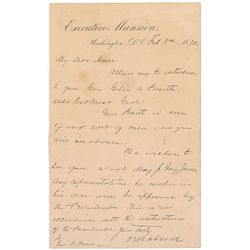 Executive Mansion,
Washington, D.C. Feb 3rd 1870.
My dear Ames.
Allow me to introduce
to you Gen Giles A Smith,
asst Post Mast Genl.
Genl Smith is one
of our sort of men, as you
will see
He wishes to
see you about Maj J.
Any representations he makes in
his case will be approved by
the President. This is in
accordance with the instructions
of the President. Yours truly
O E Babcock